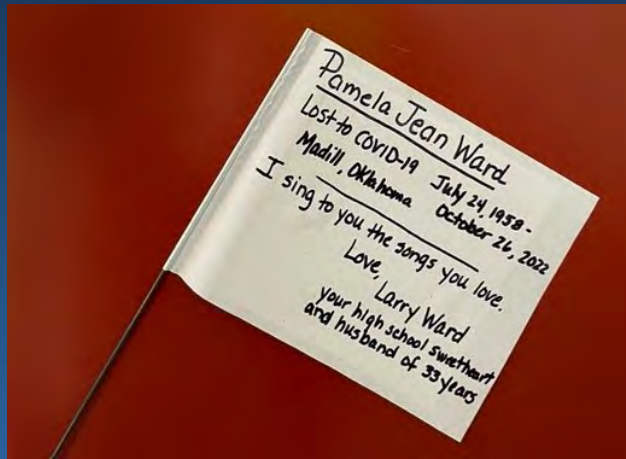 Pamela Jean Ward
Lost to COVID-19 July 24, 1958 -
Madill, Oklahoma October 26, 2022
I sing to you the songs you love.
Love,
Larry Ward
your high school sweetheart
and husband of 33 years